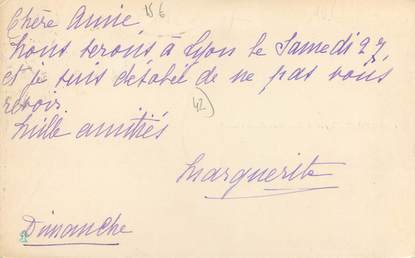 Chère Amie, 156
Nous serons à Lyon le Samedi 27
et je suis désolée de ne pas vous
revoir. 42
Mille amitiés
Marguerite
Dimanche